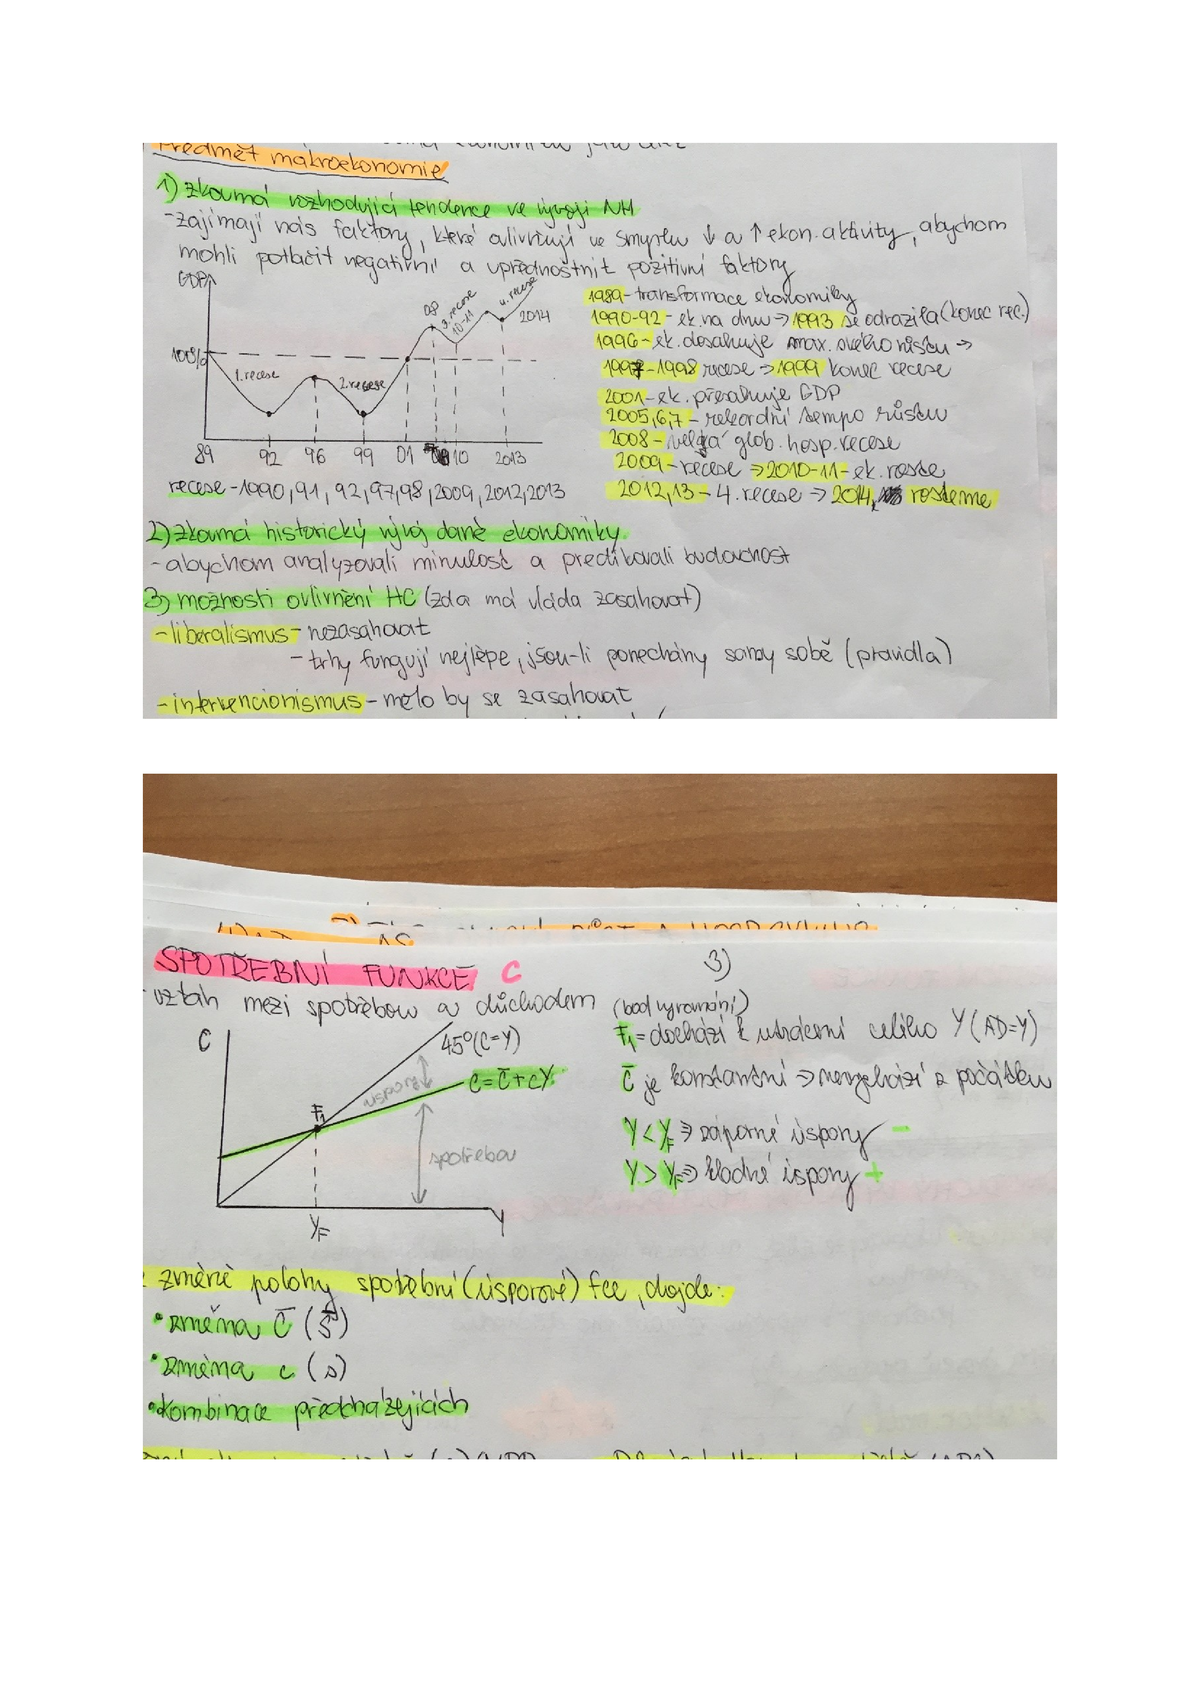 Předmět makroekonomie
1) zkoumá rozhodující tendence ve vývoji NH
- zajímají nás faktory, které ovlivňují ve smyslu ↓ a ↑ ekon. aktivity, abychom
mohli potlačit negativní a upřednostnit pozitivní faktory
GDP
100%
1. recese
2. recese
08
3. recese
10-11
4. recese
2014
89 92 96 99 01 10 2013
recese - 1990, 91, 92, 97, 98, 2009, 2012, 2013
1989 - transformace ekonomiky
1990-92 - ek. na dnu → 1993 se odrazila (konec rec.)
1996 - ek. dosahuje max. svého růstu →
1997-1998 recese → 1999 konec recese
2001 - ek. přesahuje GDP
2005,6,7 - rekordní tempo růstu
2008 - velká glob. hosp. recese
2009 - recese → 2010-11 - ek. roste
2012,13 - 4. recese → 2014, rosteme
2) zkoumá historický vývoj dané ekonomiky
- abychom analyzovali minulost a predikovali budoucnost
3) možnosti ovlivnění HC (zda má vláda zasahovat)
- liberalismus - nezasahovat
- trhy fungují nejlépe, jsou-li ponechány samy sobě (pravidla)
- intervencionismus - mělo by se zasahovat
SPOTŘEBNÍ FUNKCE C
3)
- vztah mezi spotřebou a důchodem
C
45° (C=Y)
C = C̄ + cY
úspory
F₁
spotřeba
Y_F
Y
(bod vyrovnání)
F₁ = dochází k utrácení celého Y (AD=Y)
C̄ je konstantní → nevychází z počátku
Y < Y_F ⇒ záporné úspory -
Y > Y_F ⇒ kladné úspory +
změně polohy spotřební (úsporové) fce, dojde:
• změna C̄ (S̄)
• změna c (s)
• kombinace předcházejících